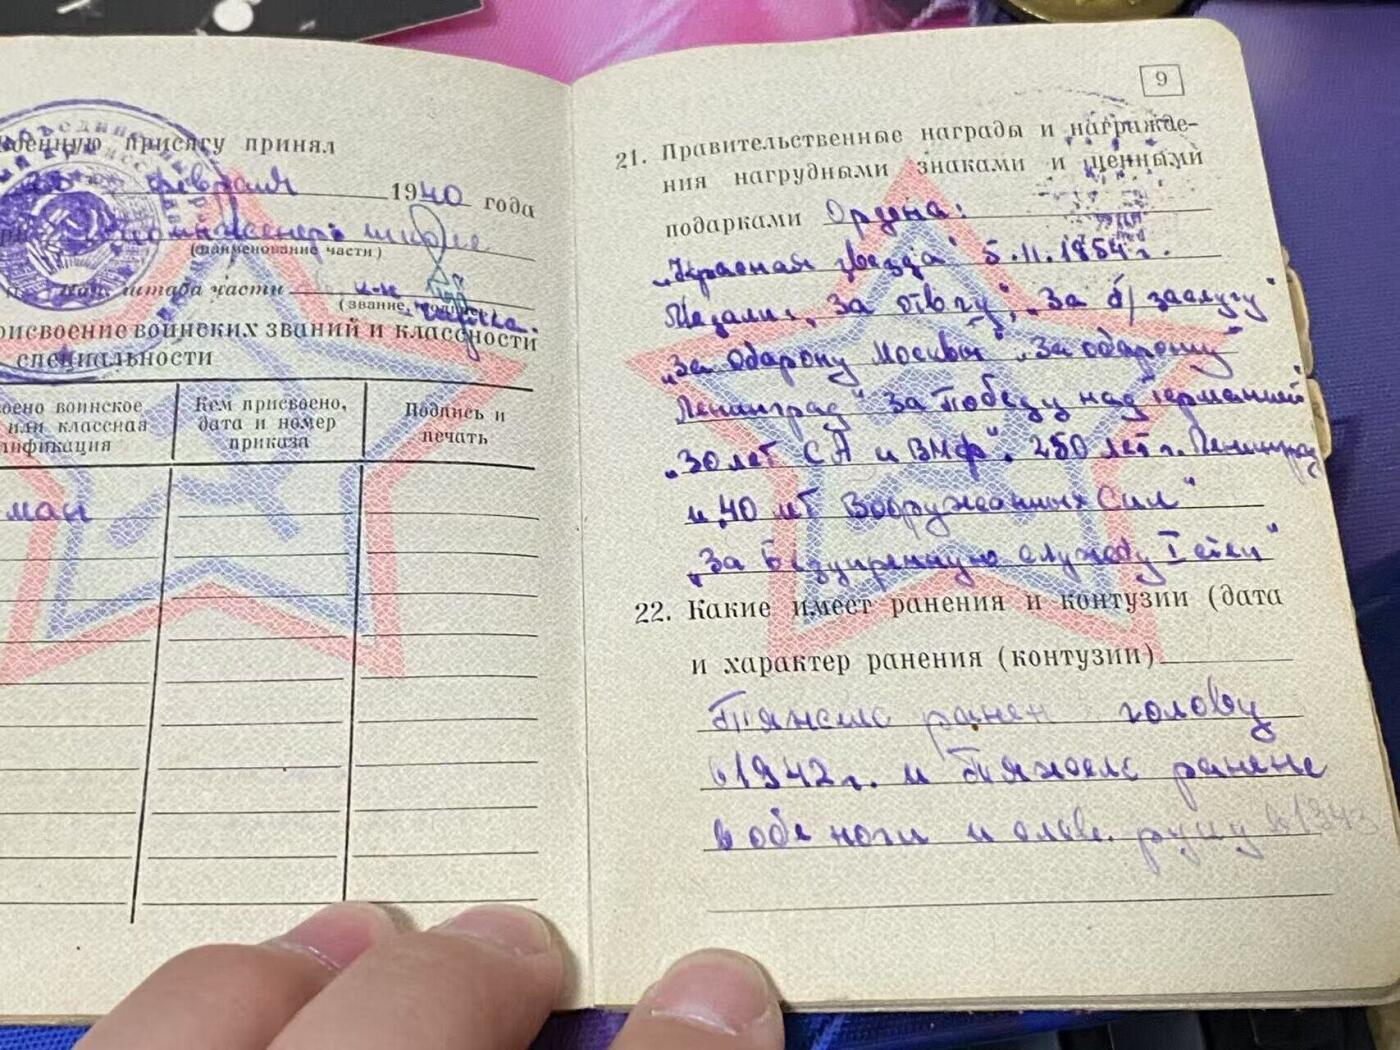 военную присягу принял
февраля 1940 года
(наименование части)
штаба части
(звание,
присвоение воинских званий и классности
специальности
воинское
или классная
Кем присвоено,
дата и номер
приказа
Подпись и
печать
9
21. Правительственные награды и награжде-
ния нагрудными знаками и ценными
подарками Ордена:
„Красная звезда" 5.11.1954 г.
Медали „За отвагу", „За б/заслугу"
„За Обарону Москвы" „За обарону
Ленинград" За Победу над Германией
„30 лет СА и ВМФ". 250 лет г. Ленинград
и 40 лет Вооружеанных Сил"
„За Безупречную службу I степ"
22. Какие имеет ранения и контузии (дата
и характер ранения (контузии)
Тяжело ранен голову
в 1942 г. и Тяжело ранене
в обе ноги и в руку 1943